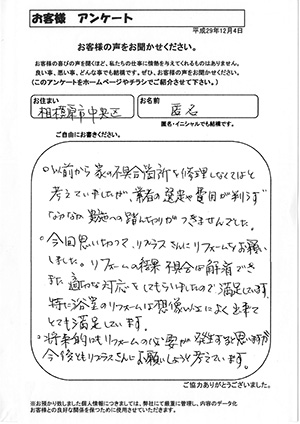 お客様 アンケート
平成29年12月4日
お客様の声をお聞かせください。
お客様の喜びの声を聞くほど、私たちの仕事に情熱を与えてくれるものはありません。
良い事、悪い事、どんな事でも結構です。ぜひ、お客様の声をお聞かせください。
(このアンケートをホームページやチラシでご紹介させて下さい。)
お住まい
お名前
相模原市中央区
匿名
匿名・イニシャルでも結構です。
ご自由にお書きください。
○以前から家の不具合箇所を修理しなくてはと
考えていましたが、業者の選定や費用が判らず
なかなか実施への踏んぎりがつきませんでした。
○今回思いきって、リプラスさんにリフォームをお願い
しました。リフォームの結果 不具合は解消でき
また 適切な対応をしてもらいましたので満足しています。
特に浴室のリフォームは想像以上によく出来て
とても満足しています。
○将来的にもリフォームの必要が発生すると思いますが
今後ともリプラスさんにお願いしようと考えています。
ご協力ありがとうございました。
※お預かり致しました個人情報につきましては、弊社にて厳重に管理し、内容のデータ化
お客様との良好な関係を保つために使用させていただきます。